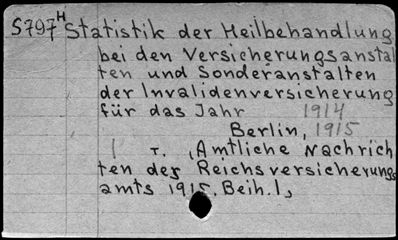 S797 H Statistik der Heilbehandlung
bei den Versicherungsanstal
ten und Sonderanstalten
der Invalidenversicherung
für das Jahr 1914
Berlin, 1915
1 T. (Amtliche Nachrich
ten des Reichsversicherungs
amts 1915. Beih. 1)